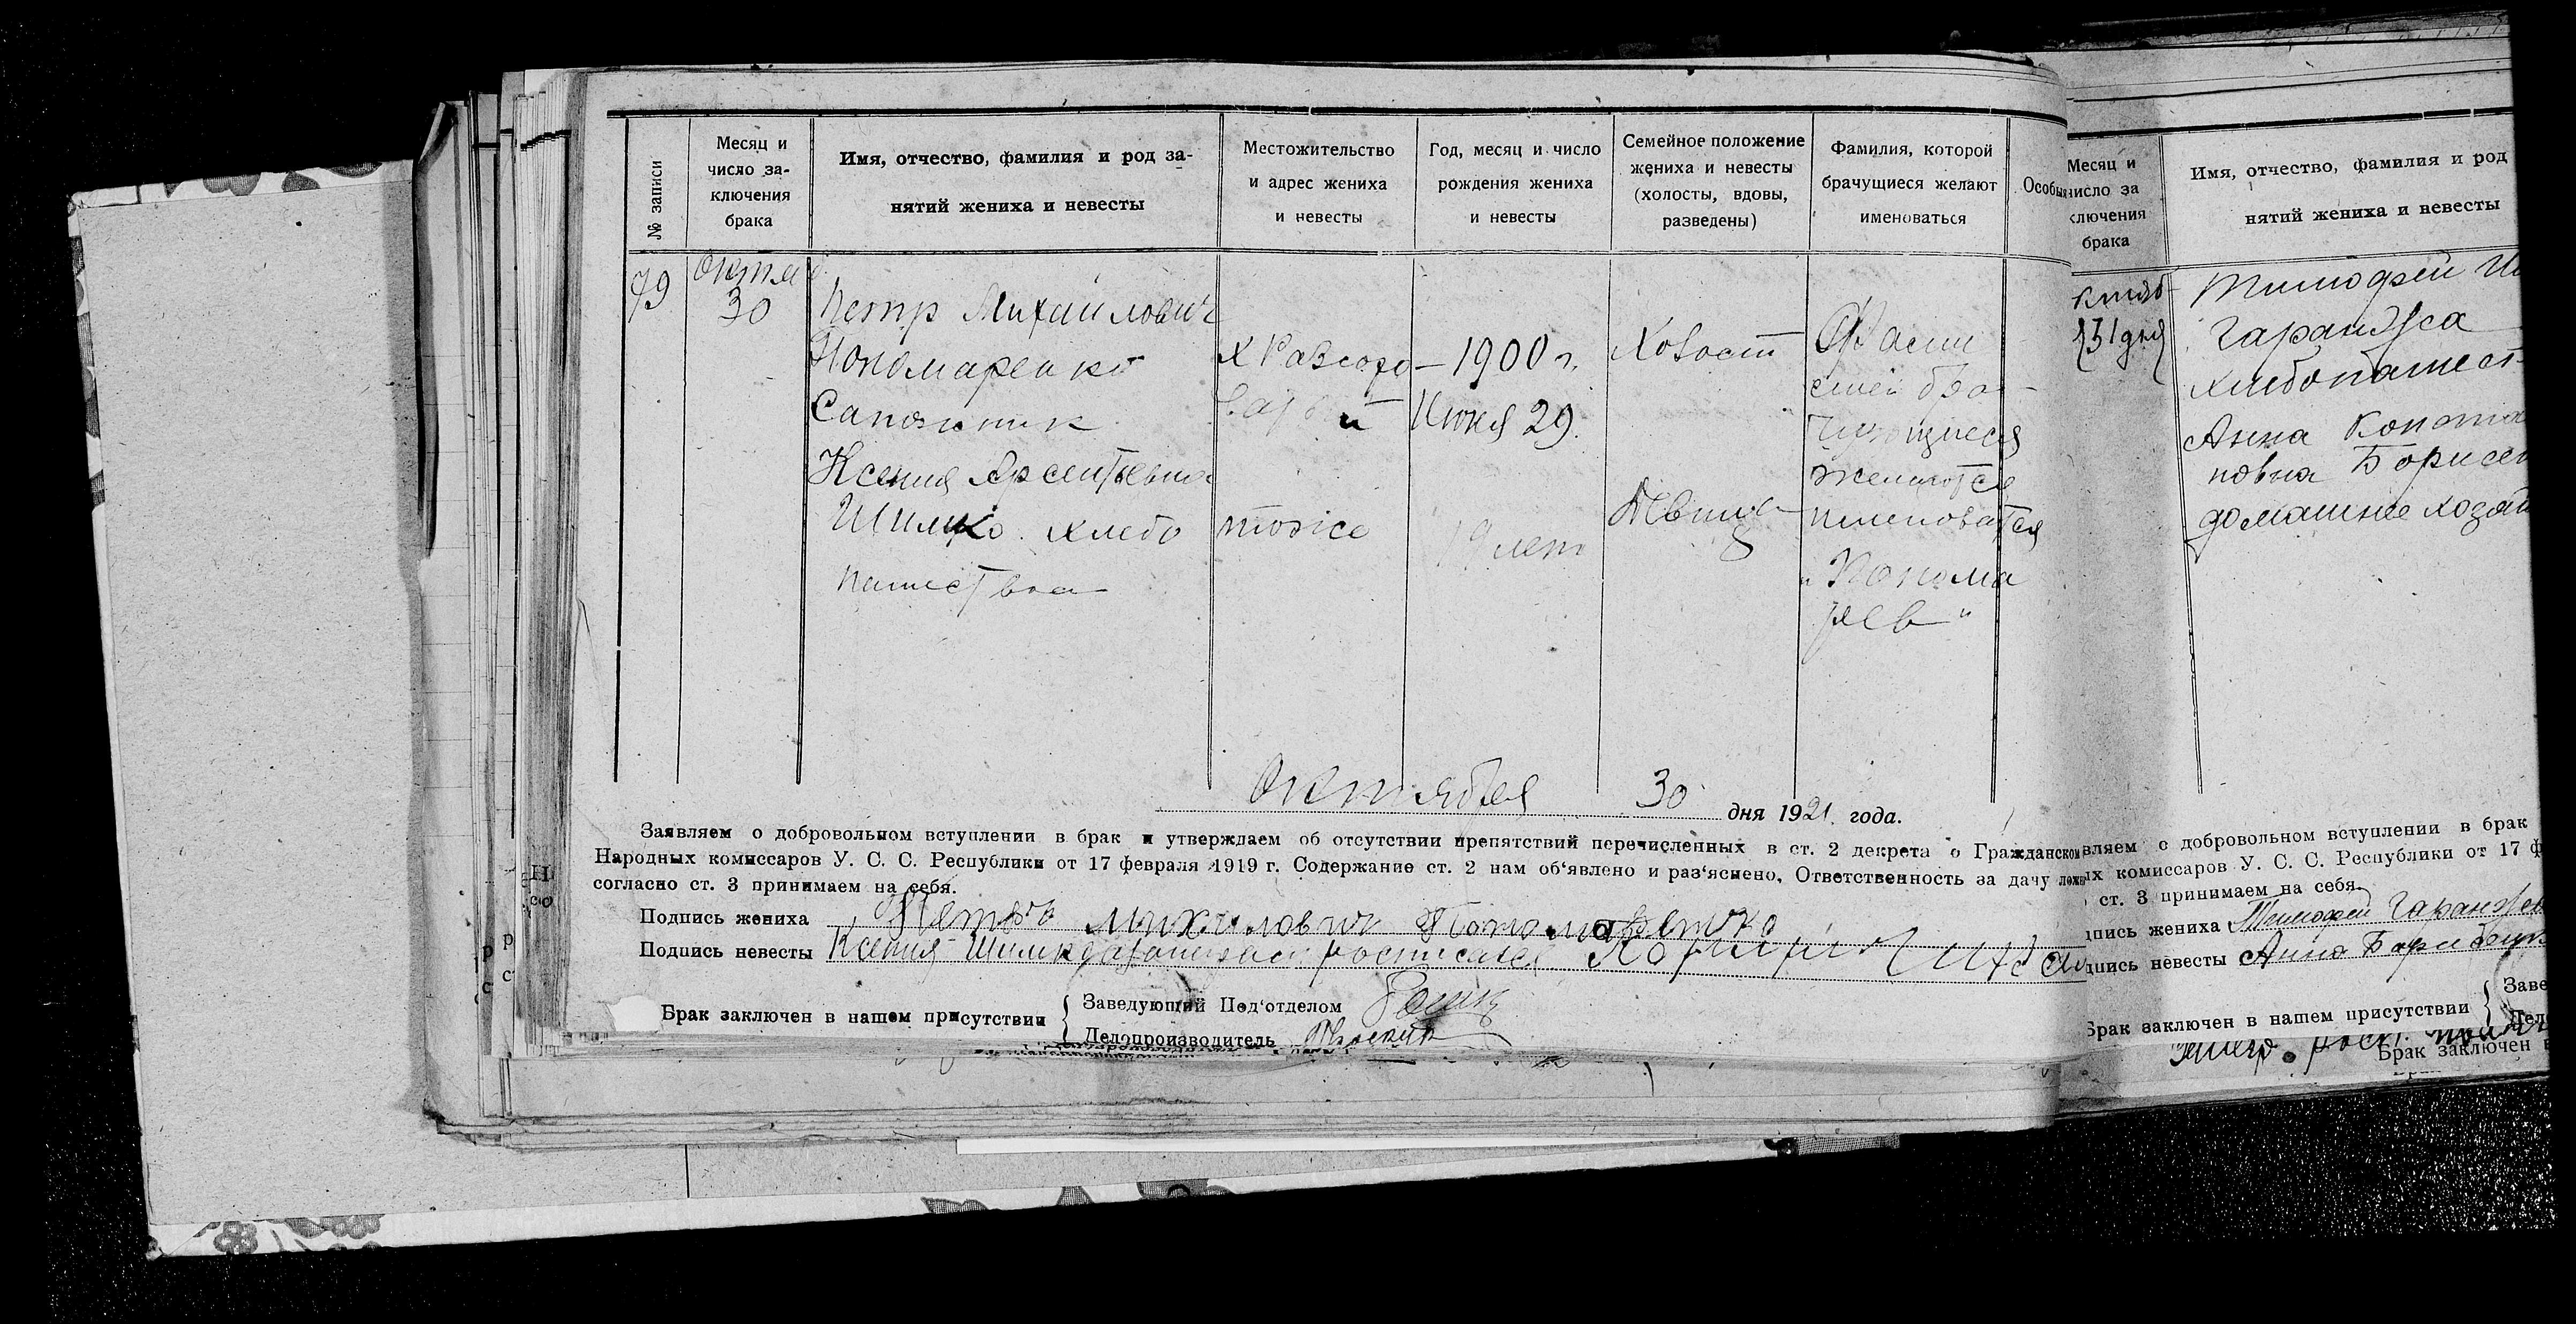 № записи
Месяц и
число за-
ключения
брака
Имя, отчество, фамилия и род за-
нятий жениха и невесты
Местожительство
и адрес жениха
и невесты
Год, месяц и число
рождения жениха
и невесты
Семейное положение
жениха и невесты
(холосты, вдовы,
разведены)
Фамилия, которой
брачущиеся желают
именоваться
Особы
79
Октяб
30
Петр Михайлович
Пономаренко
Сапожник
Ксения Арсентьевна
Шимко. хлебо
пашества
х
тоже
1900 г.
Июня 29.
19 лет
Холост
Девица
Фами
лией бра-
чующиеся
желаются
именоватся
"Понома
рев"
Октября 30 дня 1921 года.
Заявляем о добровольном вступлении в брак и утверждаем об отсутствии препятствий перечисленных в ст. 2 декрета о Гражданском
Народных комиссаров У. С. С. Республики от 17 февраля 1919 г. Содержание ст. 2 нам об‘явлено и раз‘яснено. Ответственность за дачу лож
согласно ст. 3 принимаем на себя.
Подпись жениха Петр Михилович
Подпись невесты Ксения
Брак заключен в нашем присутствии
Заведующий Под‘отделом
Делопроизводитель
Месяц и
число за
ключения
брака
Имя, отчество, фамилия и род
нятий жениха и невесты
ктяб
31 дня
Тимофей
Гаранжа
хлебопашест-
Анна Конста
новна Борисен
домашнее хозяй
вляем о добровольном вступлении в брак
ых комиссаров У. С. С. Республики от 17 ф
ст. 3 принимаем на себя.
дпись жениха Тимофей Гаранжа
дпись невесты Анна
Брак заключен в нашем присутствии
Заве
Дел
Брак заключен в